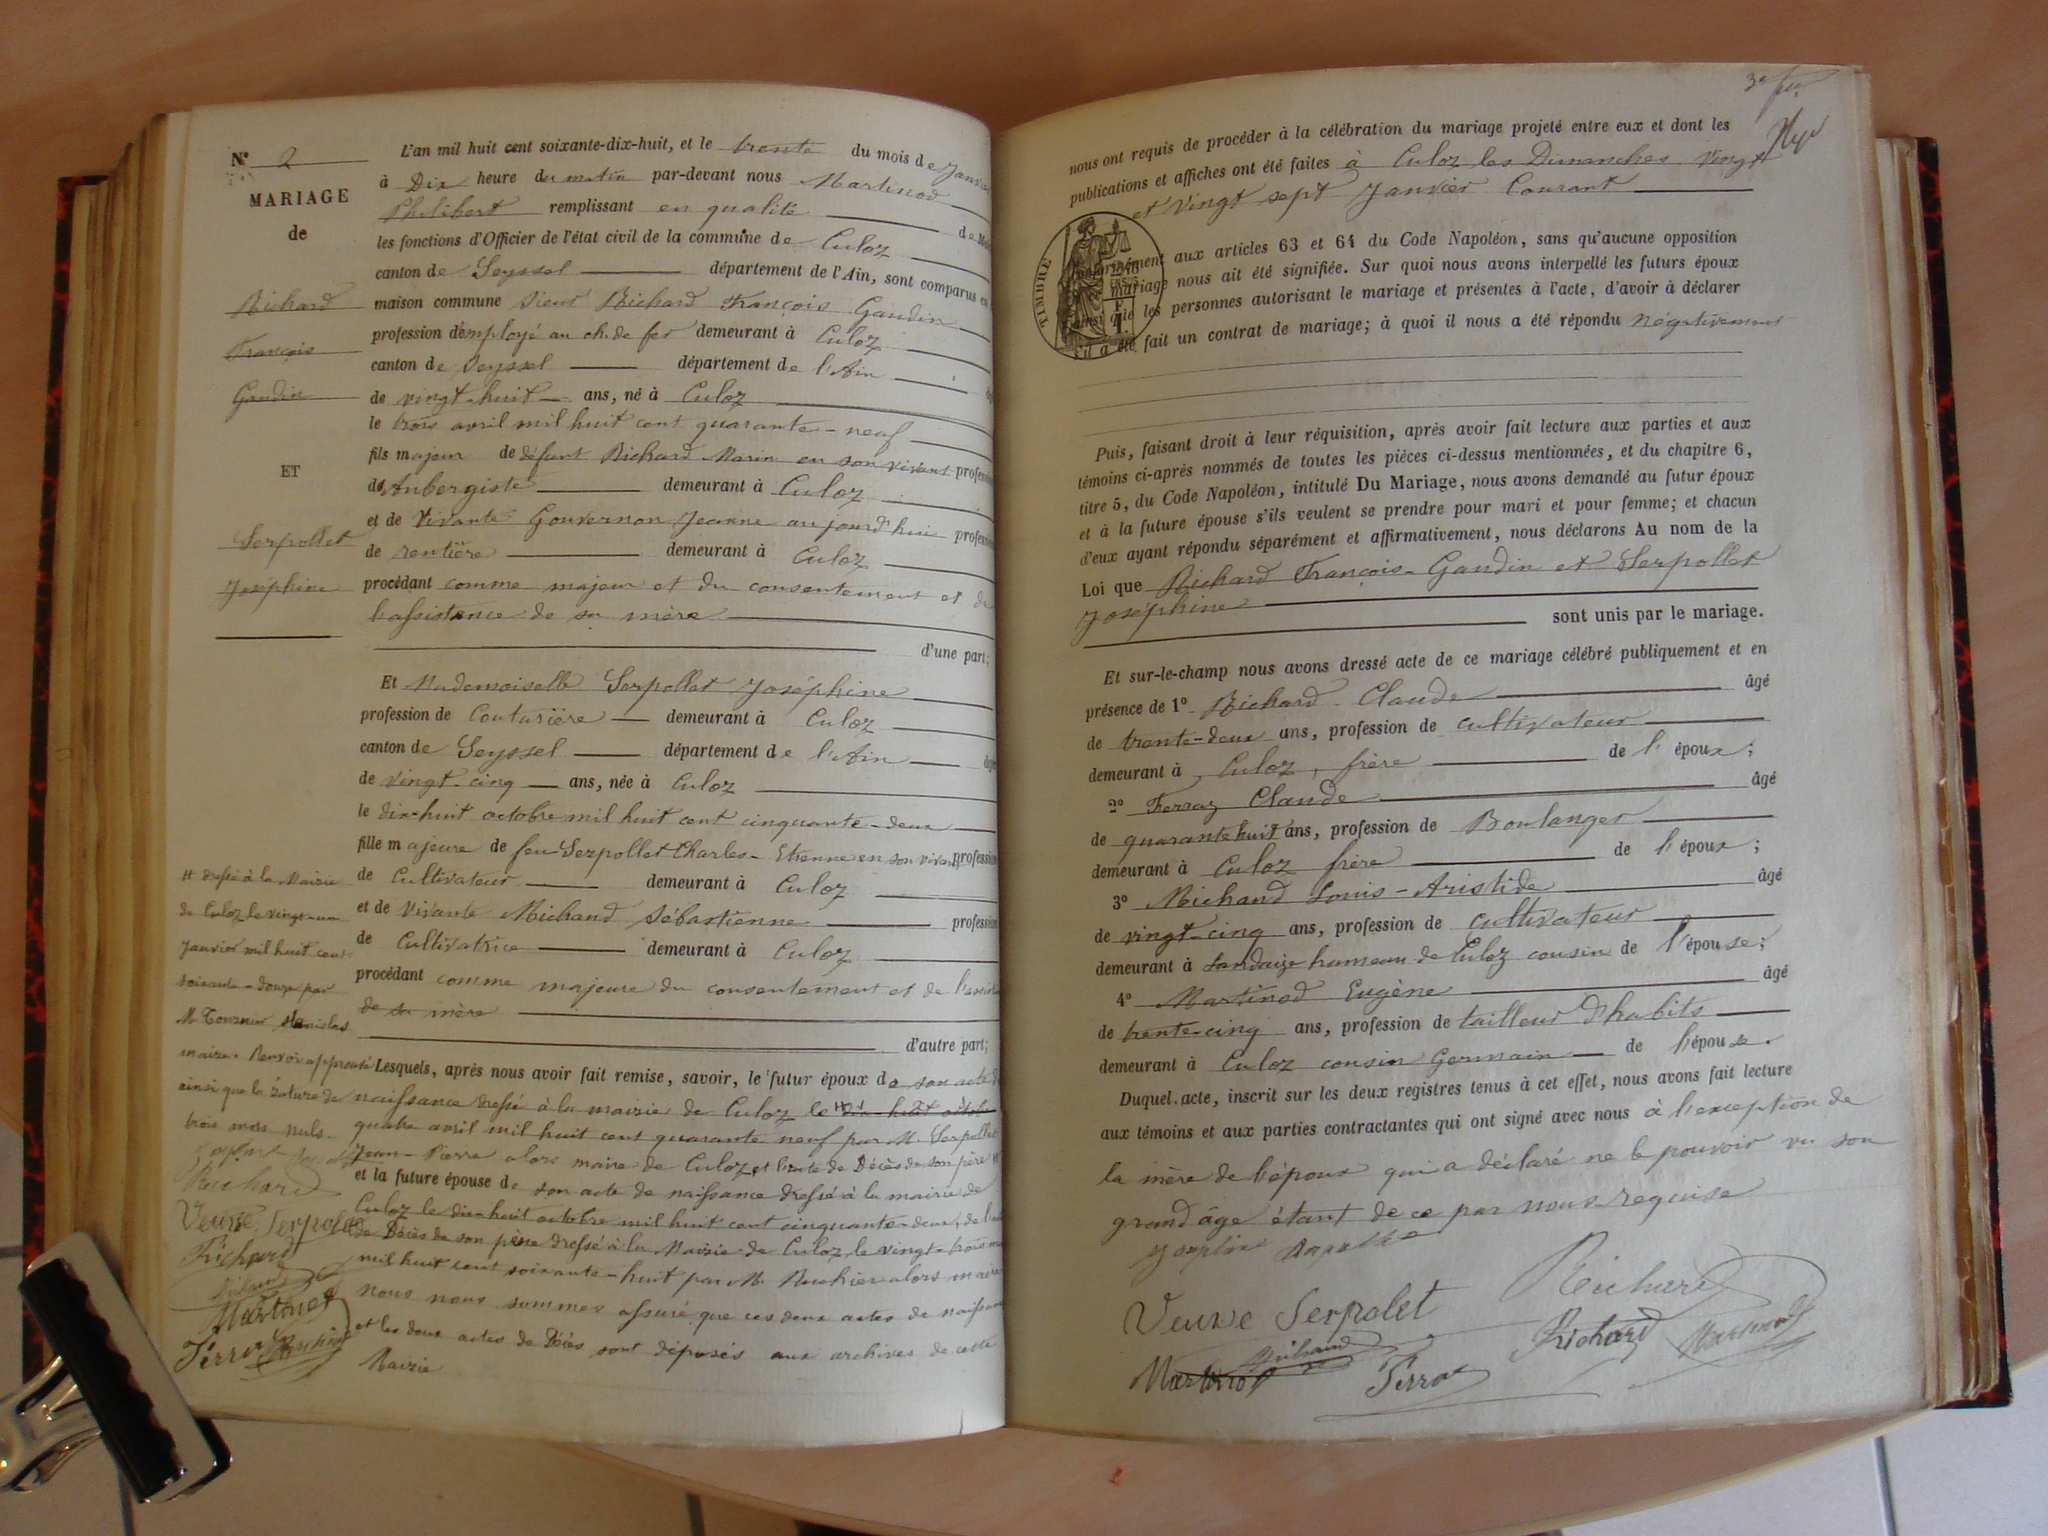 N° 2
MARIAGE
de
Richard
François
Gaudin
ET
Serpollet
Joséphine
L'an mil huit cent soixante-dix-huit, et le trente du mois de Janvier
à Dix heure du matin par-devant nous Martinod
Philibert remplissant en qualité de
les fonctions d'Officier de l'état civil de la commune de Culoz
canton de Seyssel département de l'Ain, sont comparus en
maison commune sieur Richard François Gaudin
profession d'employé au ch. de fer demeurant à Culoz
canton de Seyssel département de l'Ain
de vingt-huit ans, né à Culoz
le trois avril mil huit cent quarante-neuf
fils majeur de défunt Richard Marin en son vivant profession
d'Aubergiste demeurant à Culoz
et de vivante Gouvernon Jeanne aujourd'hui profession
de rentière demeurant à Culoz
procédant comme majeur et du consentement et de
l'assistance de sa mère
d'une part;
Et Mademoiselle Serpollet Joséphine
profession de Couturière demeurant à Culoz
canton de Seyssel département de l'Ain âgée
de vingt-cinq ans, née à Culoz
le dix-huit octobre mil huit cent cinquante-deux
fille majeure de feu Serpollet Charles-Etienne en son vivant profession
de Cultivateur demeurant à Culoz
et de vivante Michaud Sébastienne profession
de Cultivatrice demeurant à Culoz
procédant comme majeure du consentement et de l'assistance
de sa mère
d'autre part;
Lesquels, après nous avoir fait remise, savoir, le futur époux de son acte de
naissance dressé à la mairie de Culoz le dix-huit octobre
quatre avril mil huit cent quarante neuf par M. Serpollet
Jean-Pierre alors maire de Culoz, et l'acte de Décès de son père #
et la future épouse de son acte de naissance dressé à la mairie de
Culoz le dix-huit octobre mil huit cent cinquante-deux, de l'acte
de Décès de son père dressé à la Mairie de Culoz le vingt-trois
mil huit cent soixante-huit par M. alors maire
nous nous sommes assuré que ces deux actes de naissance
et les deux actes de Décès sont déposés aux archives de cette
Mairie
# dressé à la Mairie
de Culoz le vingt-un
Janvier mil huit cent
soixante-douze par
M. Tournier Stanislas
maire. Renvoi approuvé
ainsi que la rature de
trois mots nuls.
Richard
Veuve Serpolet
Richard
Michaud
Martinod
Ferraz
nous ont requis de procéder à la célébration du mariage projeté entre eux et dont les
publications et affiches ont été faites à Culoz les Dimanches vingt
et vingt sept Janvier Courant
TIMBRE
conformément aux articles 63 et 64 du Code Napoléon, sans qu'aucune opposition
mariage nous ait été signifiée. Sur quoi nous avons interpellé les futurs époux
ainsi que les personnes autorisant le mariage et présentes à l'acte, d'avoir à déclarer
s'il a été fait un contrat de mariage; à quoi il nous a été répondu négativement
Puis, faisant droit à leur réquisition, après avoir fait lecture aux parties et aux
témoins ci-après nommés de toutes les pièces ci-dessus mentionnées, et du chapitre 6,
titre 5, du Code Napoléon, intitulé Du Mariage, nous avons demandé au futur époux
et à la future épouse s'ils veulent se prendre pour mari et pour femme; et chacun
d'eux ayant répondu séparément et affirmativement, nous déclarons Au nom de la
Loi que Richard François-Gaudin et Serpollet
Joséphine
sont unis par le mariage.
Et sur-le-champ nous avons dressé acte de ce mariage célébré publiquement et en
présence de 1° Richard Claude âgé
de trente-deux ans, profession de cultivateur
demeurant à Culoz, frère de l'époux;
2° Ferraz Claude âgé
de quarante huit ans, profession de Boulanger
demeurant à Culoz frère de l'époux;
3° Michaud Louis-Aristide âgé
de vingt-cinq ans, profession de cultivateur
demeurant à Landaize hameau de Culoz cousin de l'épouse;
4° Martinod Eugène âgé
de trente-cinq ans, profession de tailleur d'habits
demeurant à Culoz cousin Germain de l'épouse.
Duquel acte, inscrit sur les deux registres tenus à cet effet, nous avons fait lecture
aux témoins et aux parties contractantes qui ont signé avec nous à l'exception de
la mère de l'époux qui a déclaré ne le pouvoir vu son
grand âge étant de ce par nous requise
Veuve Serpolet Richard
Michaud Richard Martinod
Martinod Ferraz